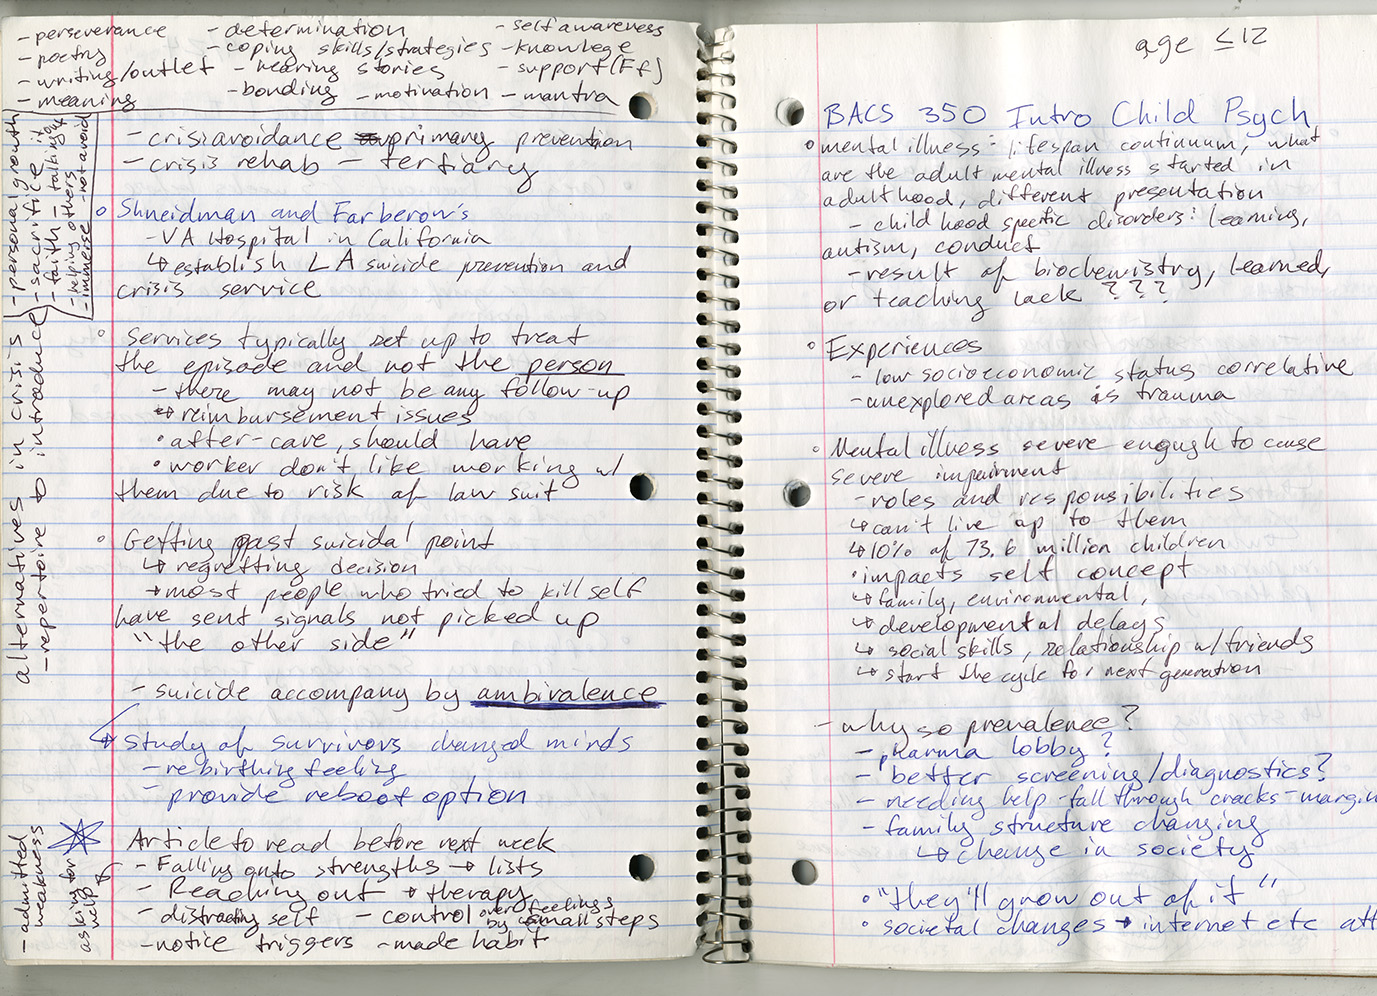 - perseverance - determination - self awareness
- poetry - coping skills/strategies - knowlege
- writing/outlet - hearing stories - support (Ff)
- meaning - bonding - motivation - mantra
alternatives in crisis
- repertoire to intraduce
- personal growth
- sacrifice it
- faith - talking
- helping others
- immerse - not avoid
- crisis avoidance primary prevention
- crisis rehab - tertiary
Shneidman and Farberow's
- VA Hospital in California
↳ establish LA suicide prevention and
crisis service
Services typically set up to treat
the episode and not the person
- there may not be any follow-up
↳ reimbursement issues
• after-care, should have
• worker don't like working w/
them due to risk of law suit
Getting past suicidal point
↳ regretting decision
→ most people who tried to kill self
have sent signals not picked up
"the other side"
- suicide accompany by ambivalence
↳ Study of survivors changed minds
- rebirthing feeling
- provide reboot option
Article to read before next week
- Falling onto strengths → lists
- Reaching out → therapy
- distracting self - control over feelings by small steps
- notice triggers - made habit
- admitted weakness
asking for help
age ≤ 12
BACS 350 Intro Child Psych
• mental illness - lifespan continuum, what
are the adult mental illness started in
adulthood, different presentation
- child hood specific disorders: learning,
autism, conduct
- result of biochemistry, learned,
or teaching lack ???
• Experiences
- low socioeconomic status correlative
- unexplored areas is trauma
• Mental illness severe enough to cause
severe impairment
- roles and responsibilities
↳ can't live up to them
↳ 10% of 73.6 million children
• impacts self concept
↳ family, environmental,
↳ developmental delays
↳ social skills, relationship w/friends
↳ start the cycle for next generation
- why so prevalence?
- pharma lobby?
- better screening/diagnostics?
- needing help - fall through cracks - margin
- family structure changing
↳ change in society
• "they'll grow out of it"
• societal changes → internet etc att